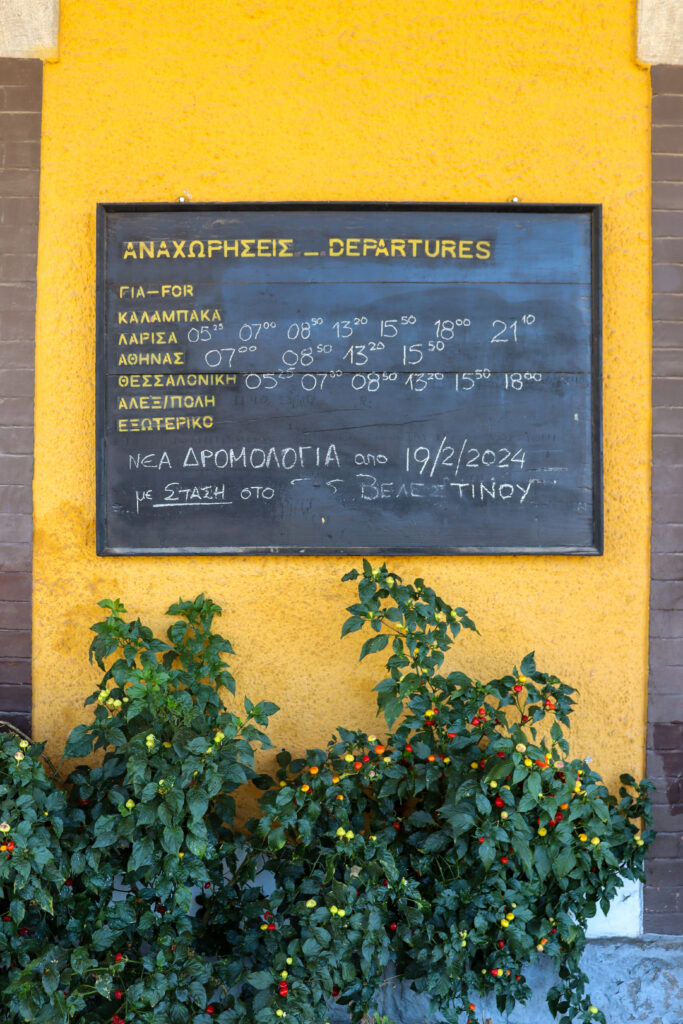 ΑΝΑΧΩΡΗΣΕΙΣ _ DEPARTURES
ΓΙΑ-FOR
ΚΑΛΑΜΠΑΚΑ
ΛΑΡΙΣΑ 05²⁵ 07⁰⁰ 08⁵⁰ 13²⁰ 15⁵⁰ 18⁰⁰ 21¹⁰
ΑΘΗΝΑΣ 07⁰⁰ 08⁵⁰ 13²⁰ 15⁵⁰
ΘΕΣΣΑΛΟΝΙΚΗ 05²⁵ 07⁰⁰ 08⁵⁰ 13²⁰ 15⁵⁰ 18⁰⁰
ΑΛΕΞ/ΠΟΛΗ
ΕΞΩΤΕΡΙΚΟ
ΝΕΑ ΔΡΟΜΟΛΟΓΙΑ απο 19/2/2024
με ΣΤΑΣΗ στο ΒΕΛΕΣΤΙΝΟΥ